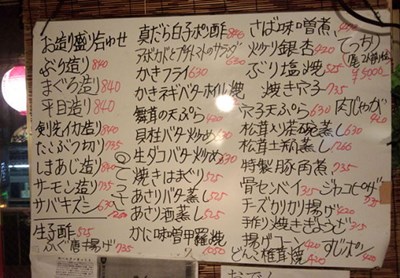 お造り盛り合わせ
ぶり造り 840
まぐろ造り 840
平目造り 840
剣先イカ造り 840
たこぶつ切り 735
しまあじ造り
サーモン造り 735
サバキズシ 630
生子酢 525
ふぐ唐揚げ 735
真だら白子ポン酢
アボカドとプチトマトのサラダ
かきフライ 630
かきネギバターホイル焼
舞茸の天ぷら 420
貝柱バター炒め 630
生ダコバター炒め 630
焼きはまぐり
あさりバター蒸し
あさり酒蒸し
かに味噌甲羅焼 1050
さば味噌煮 630
炒り銀杏 420
ぶり塩焼 525
焼き穴子 735
穴子天ぷら 630
松茸入り茶碗蒸し 630
松茸土瓶蒸し
特製豚角煮 735
骨センベイ 315
チーズカリカリ揚げ 420
手作り焼きぎょうざ
揚げコーン 420
どんこ椎茸焼 420
てっちり
肉じゃが
ジャコピザ
すじポン